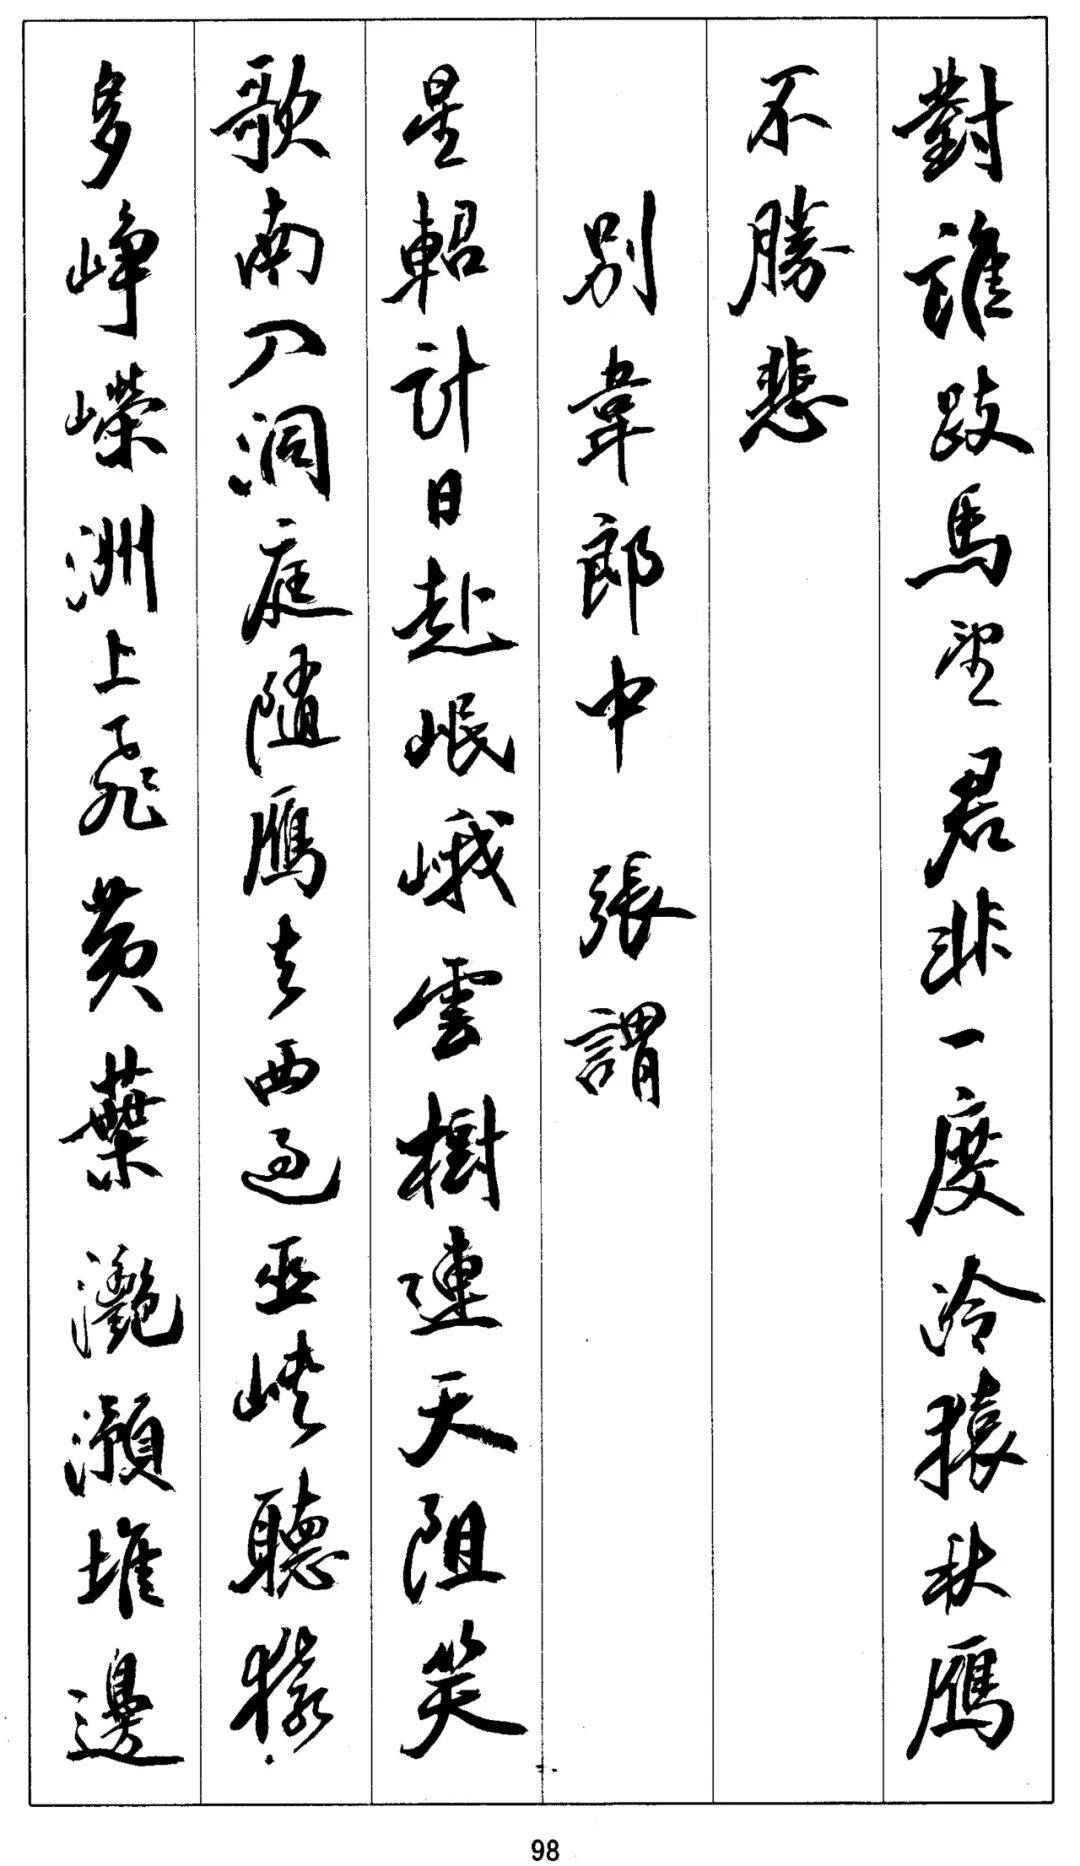 對誰跂馬望君非一度冷猿秋鴈
不勝悲
別韋郎中 張謂
星軺計日赴岷峨雲樹連天阻笑
歌南入洞庭隨鴈去西過巫峽聽猿
多崢嶸洲上飛黃葉灩澦堆邊
98